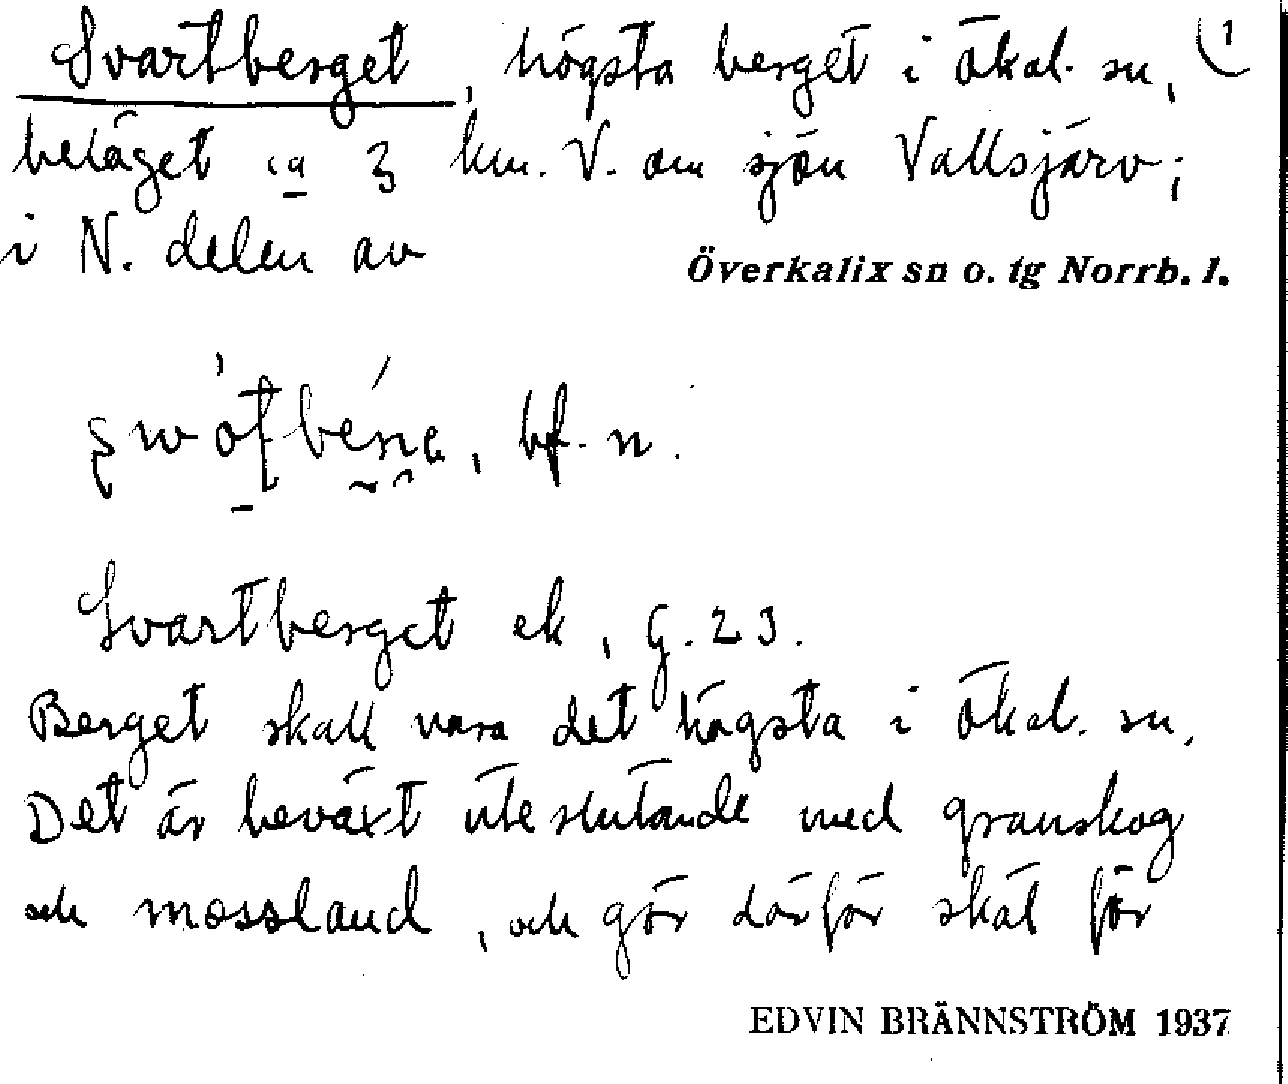 Svartberget, högsta berget i ökal. sn, 1
beläget ca 3 km. V. om sjön Vallsjärv;
i N. delen av
Överkalix sn o. tg Norrb. l.
bf. n.
Svartberget ek, G. 23.
Berget skall vara det högsta i ökal. sn.
Det är beväxt uteslutande med granskog
och mossland, och gör därför skäl för
EDVIN BRÄNNSTRÖM 1937